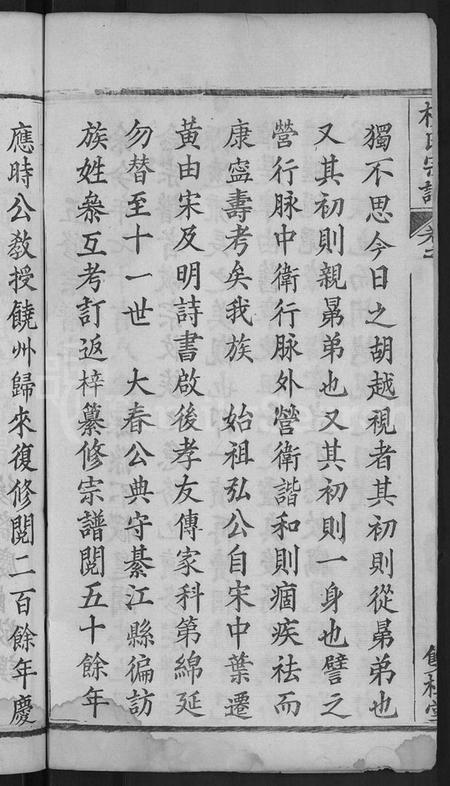 氏宗譜 卷二
獨不思今日之胡越視者其初則從晜弟也
又其初則親晜弟也又其初則一身也譬之
營行脉中衛行脉外營衛諧和則痼疾祛而
康寍壽考矣我族 始祖弘公自宋中葉遷
黃由宋及明詩書啟後孝友傳家科第綿延
勿替至十一世 大春公典守綦江縣徧訪
族姓叅互考訂返梓纂修宗譜閱五十餘年
應時公敎授饒州歸來復修閱二百餘年慶